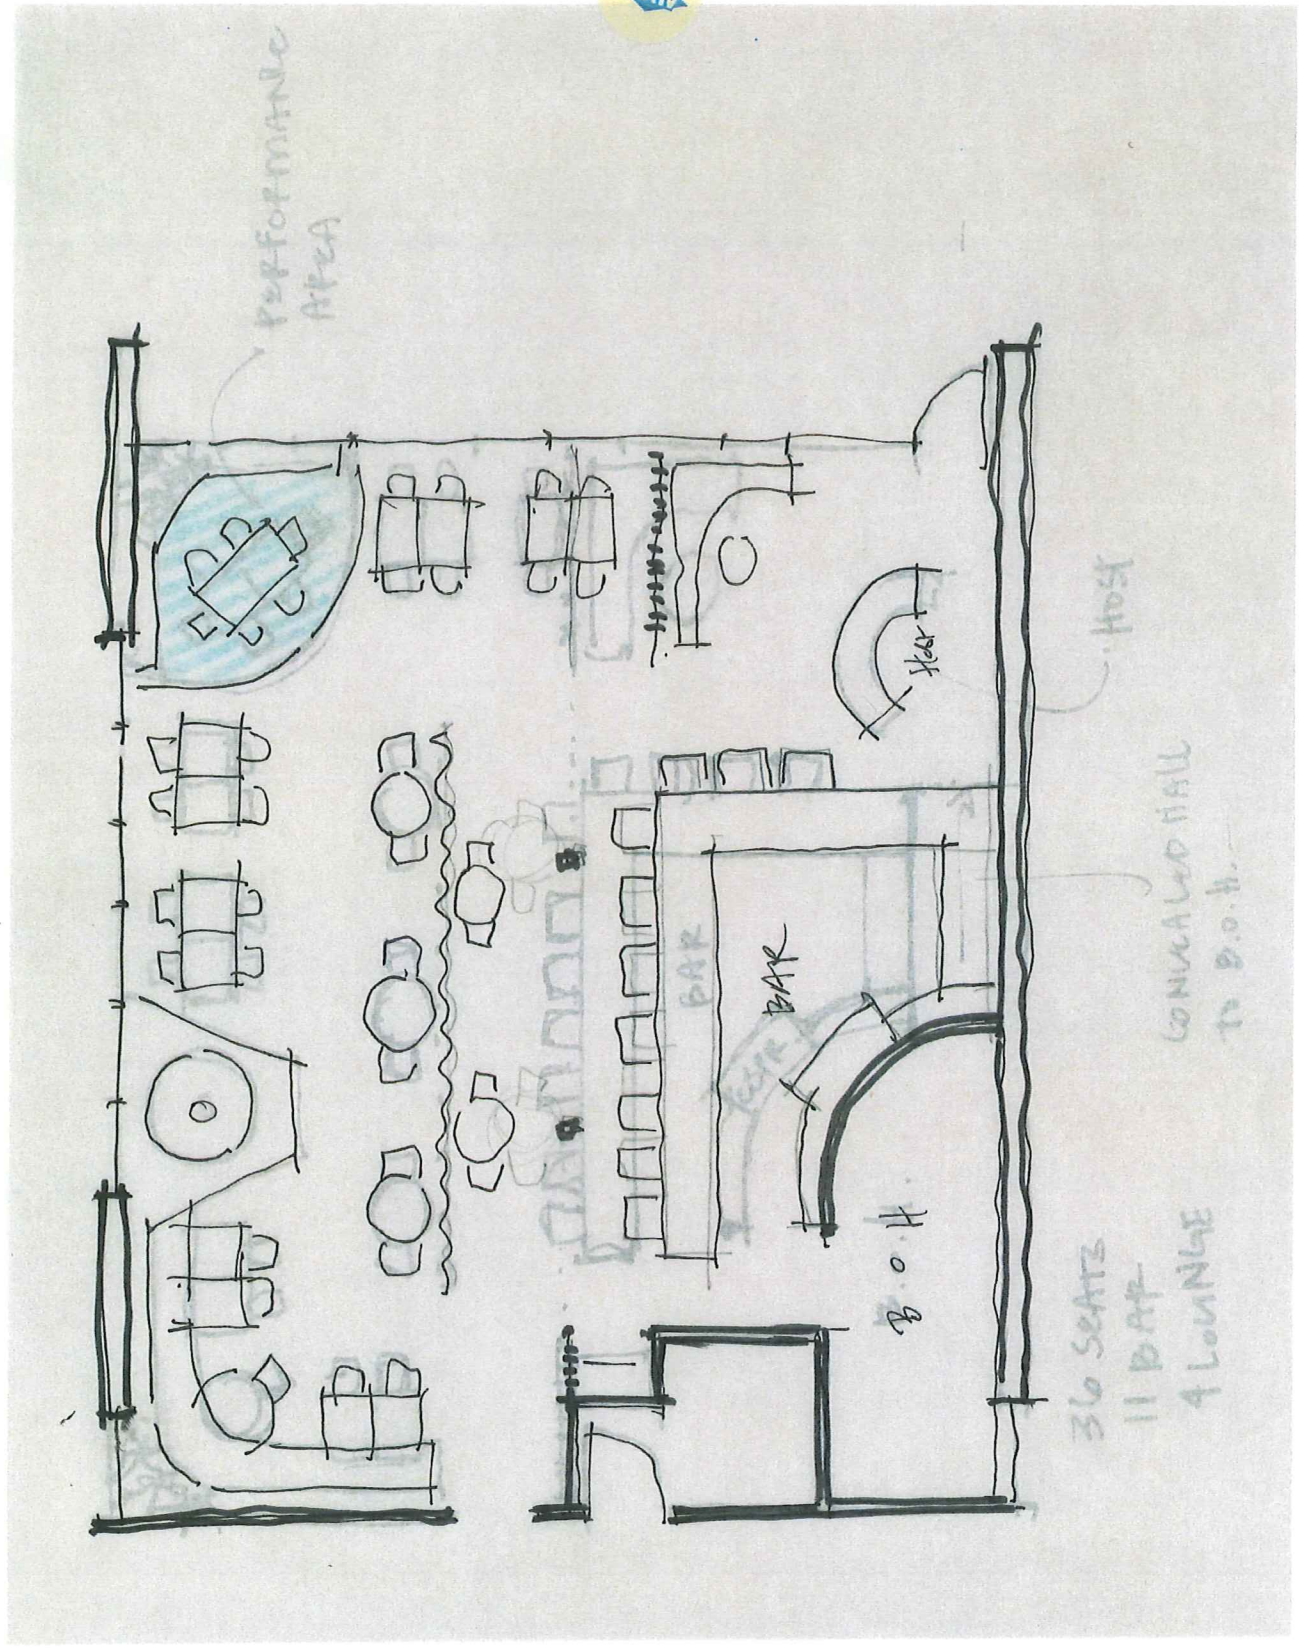 PERFORMANCE
AREA
HOST
HOST
CONCEALED HALL
TO B.O.H.
BAR
BAR
B.O.H.
36 SEATS
11 BAR
4 LOUNGE